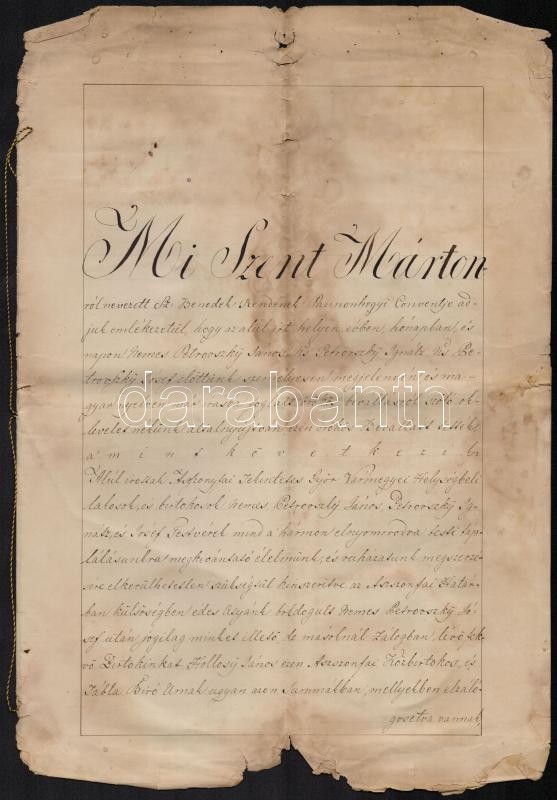 Mi Szent Márton-
ról nevezett Sz. Benedek Rendének Pannonhegyi Conventje ad-
juk emlékezetűl, hogy az alúl írt helyen, evben, hónapban, és
napon Nemes Petrovszky János, Petrovszky Ignátz, Pe-
trovszky Jósef előttünk személyesen megjelenvén és ma-
gyar nyelven irásban foglalt
leveles nekünk általnyujtván ezen örökös
a m i n t k ö v e t k e z i k
Alúl irottak Aszszonyfai Tekintetes Győr Vármegyei Helységbeli
lakosok, és birtokosok Nemes Petrovszky János, Petrovszky Ig-
nátz, és Josef Testvérek mind a hármon elnyomorodva testi táp-
lálásunkra megkivántató élelmünk, és ruházatunk megszerzé-
sére elkerülhetetlen szükségtűl kinszeritve az Aszszonfai Határ-
ban külsőségben edes Atyánk boldogult Nemes Petrovszky Jó-
sef után jogilag minket illető de másoknál Zálogban lévő fek-
vő Birtokinkat Hollósy János ezen Aszszonfai Közbirtokos, és
Tábla Biró Urnak ugyan azon Summákban, mellyekben elzálo-
gosítva vannak,
darabanth